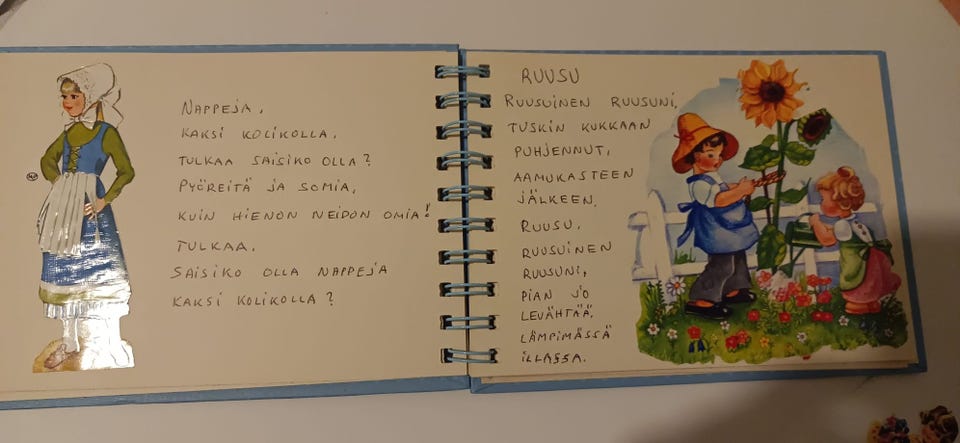 NAPPEJA,
KAKSI KOLIKOLLA,
TULKAA SAISIKO OLLA?
PYÖREITÄ JA SOMIA,
KUIN HIENON NEIDON OMIA!
TULKAA,
SAISIKO OLLA NAPPEJA
KAKSI KOLIKOLLA?
RUUSU
RUUSUINEN RUUSUNI,
TUSKIN KUKKAAN
PUHJENNUT,
AAMUKASTEEN
JÄLKEEN.
RUUSU,
RUUSUINEN
RUUSUNI,
PIAN J'O
LEVÄHTÄÄ,
LÄMPIMÄSSÄ
ILLASSA.